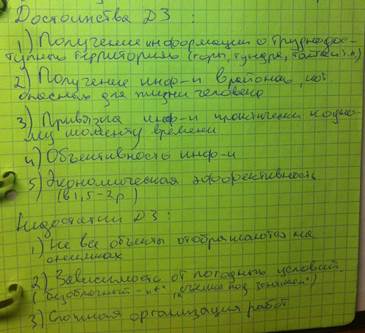 Достоинства ДЗ:
1) Получение информации о труднодос-
тупной территориях (горы, тундра, тайга и т.п)
2) Получение инф-и в районах,
опасных для жизни человека
3) Привязка инф-и практически к одно-
му моменту времени
4) Объективность инф-и
5) Экономическая эффективность
(в 1,5-2р.)
Недостатки ДЗ:
1) Не все объекты отображаются на
снимках
2) Зависимость от погодных условий
("безоблачной -
3) Сложная организация работ